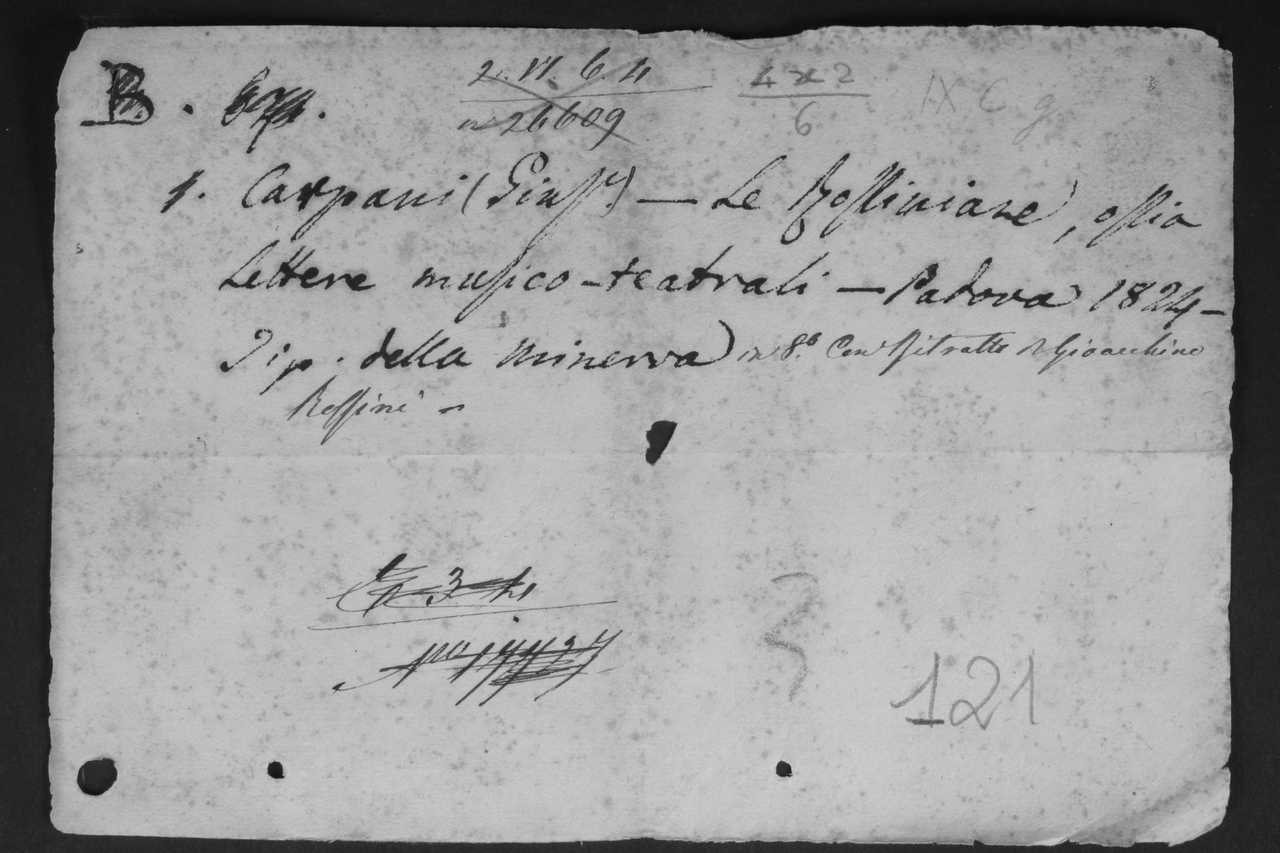 B.
2. VI. 6. 4
4 x 2
IX C g
nº 26609
6
1. Carpani (Giuse.) — Le Rossiniane, ossia
Lettere musico-teatrali — Padova 1824 –
Tip. della Minerva in 8.º Con Ritratto di Gioacchino
Rossini –
3
121